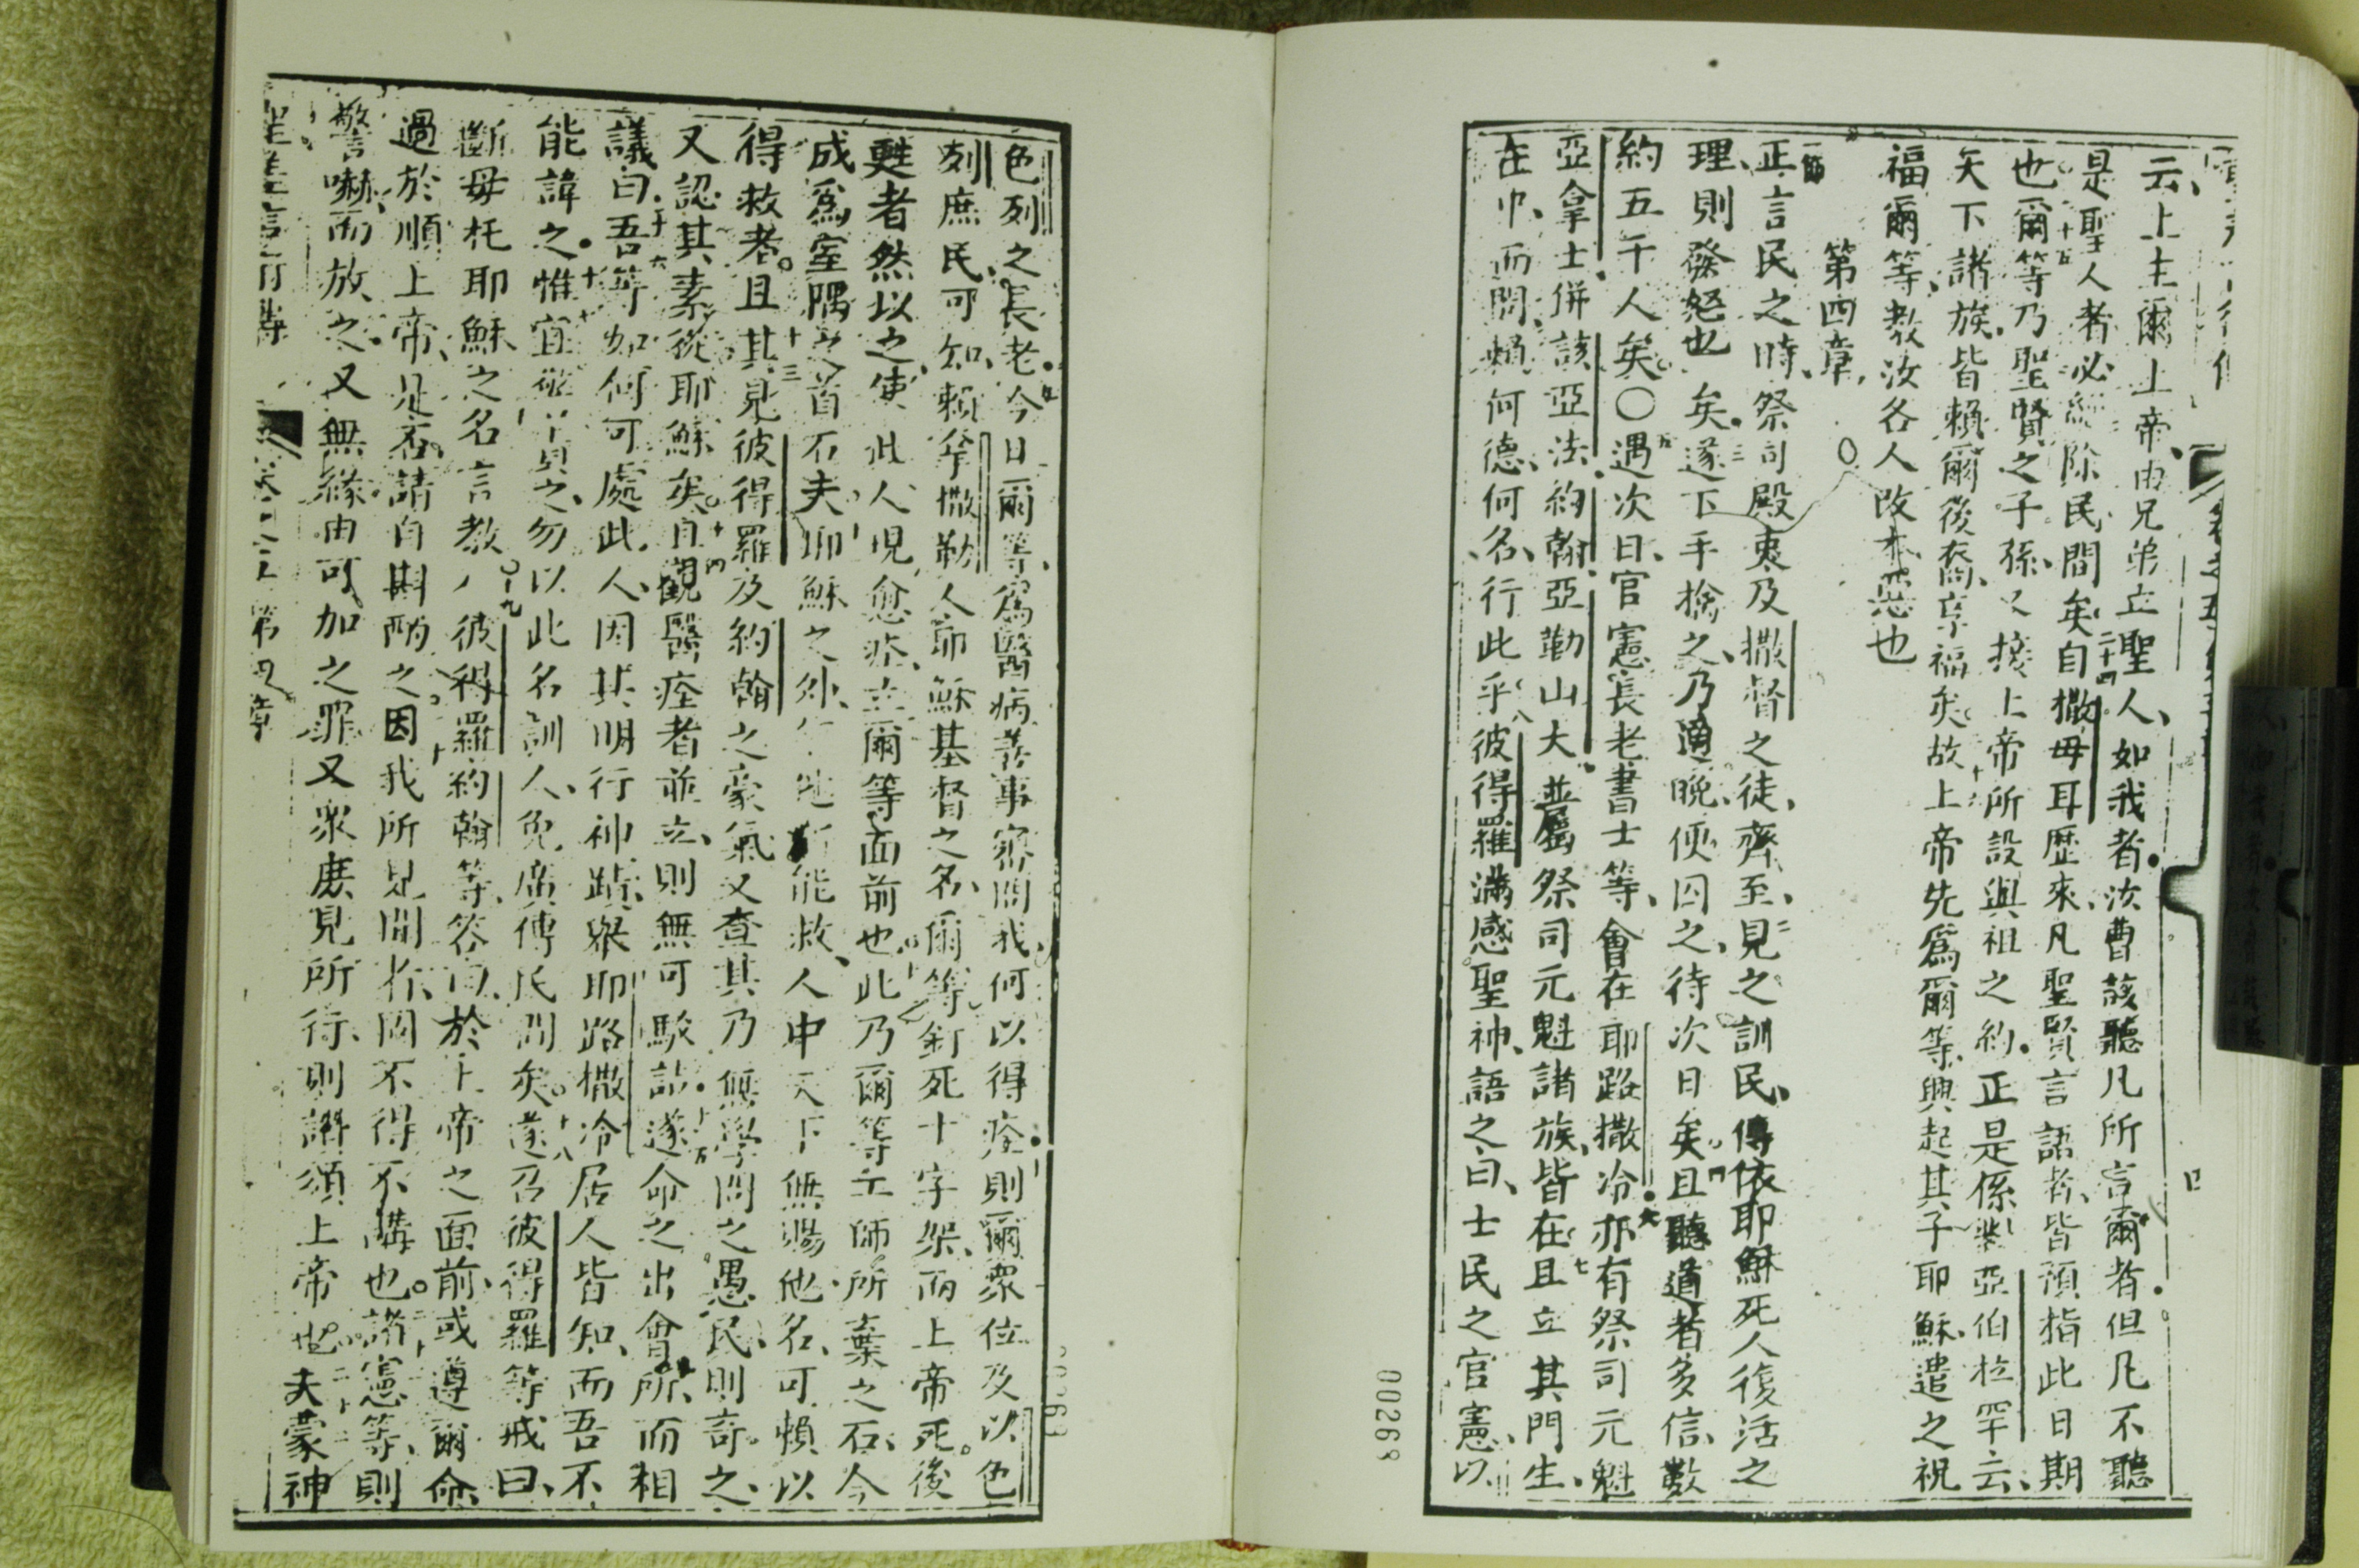 云上主爾上帝由兄弟立聖人如我者汝曹該聽凡所言爾者但凡不聽
是聖人者必絕除民間矣二十四自撒母耳歷來凡聖賢言語者皆預指此日期
也十五爾等乃聖賢之子孫又接上帝所設與祖之約正是係對亞伯拉罕云
天下諸族皆賴爾後裔享福矣故上帝先爲爾等興起其子耶穌遣之祝
福爾等教汝各人改本惡也
第四章
一節
正言民之時祭司殿吏及撒督之徒齊至二見之訓民傳依耶穌死人復活之
理則發怒也矣三遂下手擒之乃適晚便囚之待次日矣四且聽道者多信數
約五千人矣〇五遇次日官憲長老書士等會在耶路撒冷六亦有祭司元魁
亞拿士併該亞法約翰亞勒山大並屬祭司元魁諸族皆在七且立其門生
在中而問賴何德何名行此乎八彼得羅滿感聖神語之曰士民之官憲以
00268
色列之長老九今日爾等爲醫病善事察問我何以得痊十則爾衆位及以色
列庶民可知賴拿撒勒人耶穌基督之名爾等釘死十字架而上帝死後
甦者然以之使此人現愈痊立爾等面前也十一此乃爾等工師所棄之石今
成爲室隅之首石夫耶穌之外 能救人中天下無賜他名可賴以
得救者且十三其見彼得羅及約翰之豪氣又查其乃無學問之愚民則奇之
又認其素從耶穌矣十四自觀醫痊者並立則無可駁詰十五遂命之出會所而相
議曰十六吾等如何可處此人因其明行神蹟衆耶路撒冷居人皆知而吾不
能諱之十七惟宜 之勿以此名訓人免廣傳民間矣十八遂召彼得羅等戒曰
斷毋托耶穌之名言教人十九彼得羅約翰等答曰於上帝之面前或遵爾命
過於順上帝是否請自斟酌之二十因我所見聞者罔不得不講也二十一諸憲等則
警嚇而放之又無緣由可加之罪又衆庶見所行則讚頌上帝也二十二夫蒙神
第四章